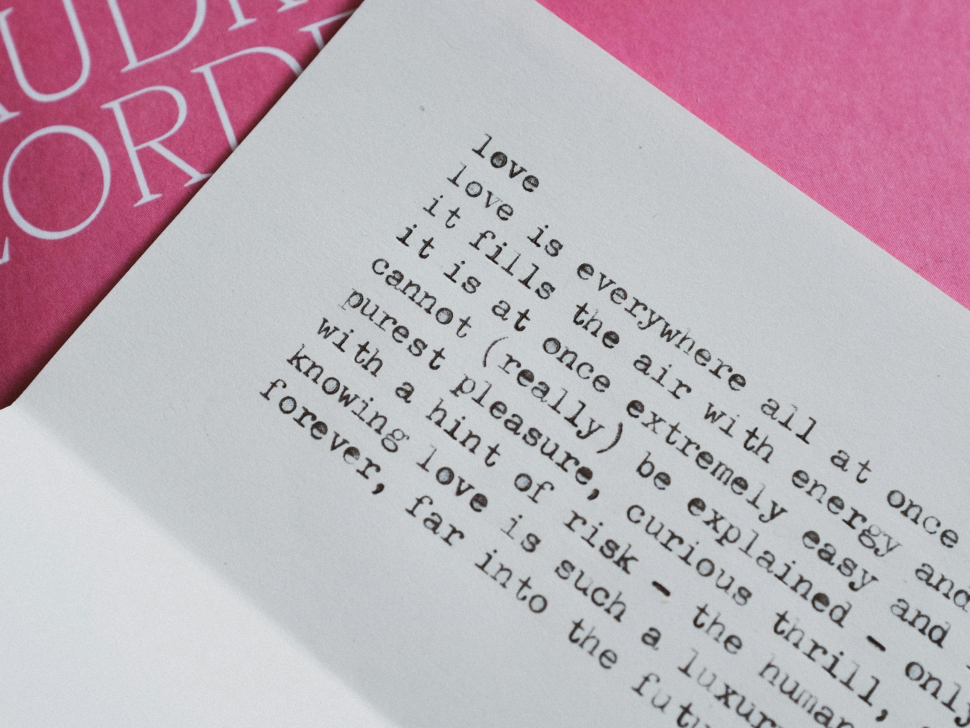 AUDR
LORD
love
love is everywhere all at once
it fills the air with energy and
it is at once extremely easy and
cannot (really) be explained – only
purest pleasure, curious thrill,
with a hint of risk – the human
knowing love is such a luxur
forever, far into the futu